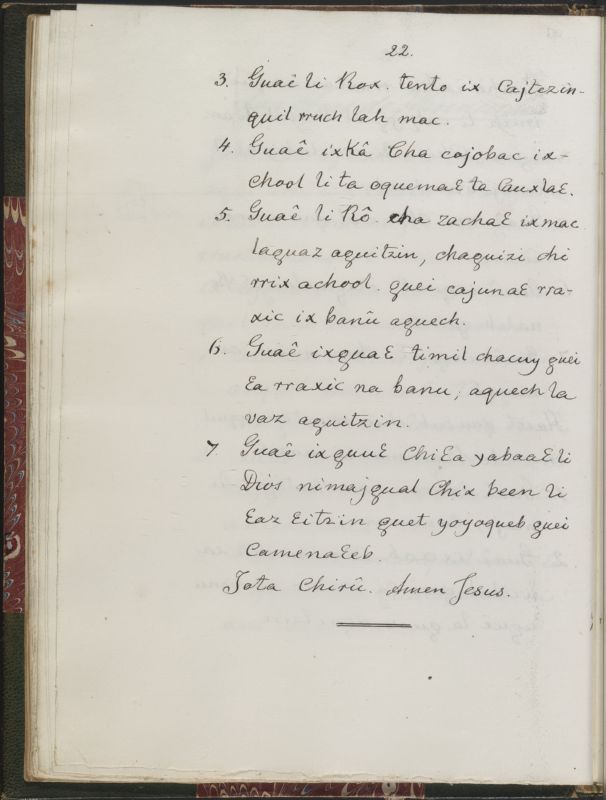 22.
3. Guaê li Rox. tento ix Cajtezin-
quil rruch lah mac.
4. Guaê ixKâ Cha cojobac ix-
chool li ta oquemaƐ ta CauxlaƐ.
5. Guaê li Rô. cha zachaƐ ixmac
laguaz aguitzin, chaguizi chi
rrix achool. guei cajunaƐ rra-
xic ix banû aguech.
6. Guaê ixguaƐ timil chacuy guei
Ɛa rraxic na banu, aguech la
vaz aguitzin.
7. Guaê ixguuƐ ChiƐa yabaaƐ li
Dios nimajgual Chix been li
Ɛaz Ɛitzin guet yoyoqueb guei
CamenaƐeb.
Jota Chirû. Amen Jesus.